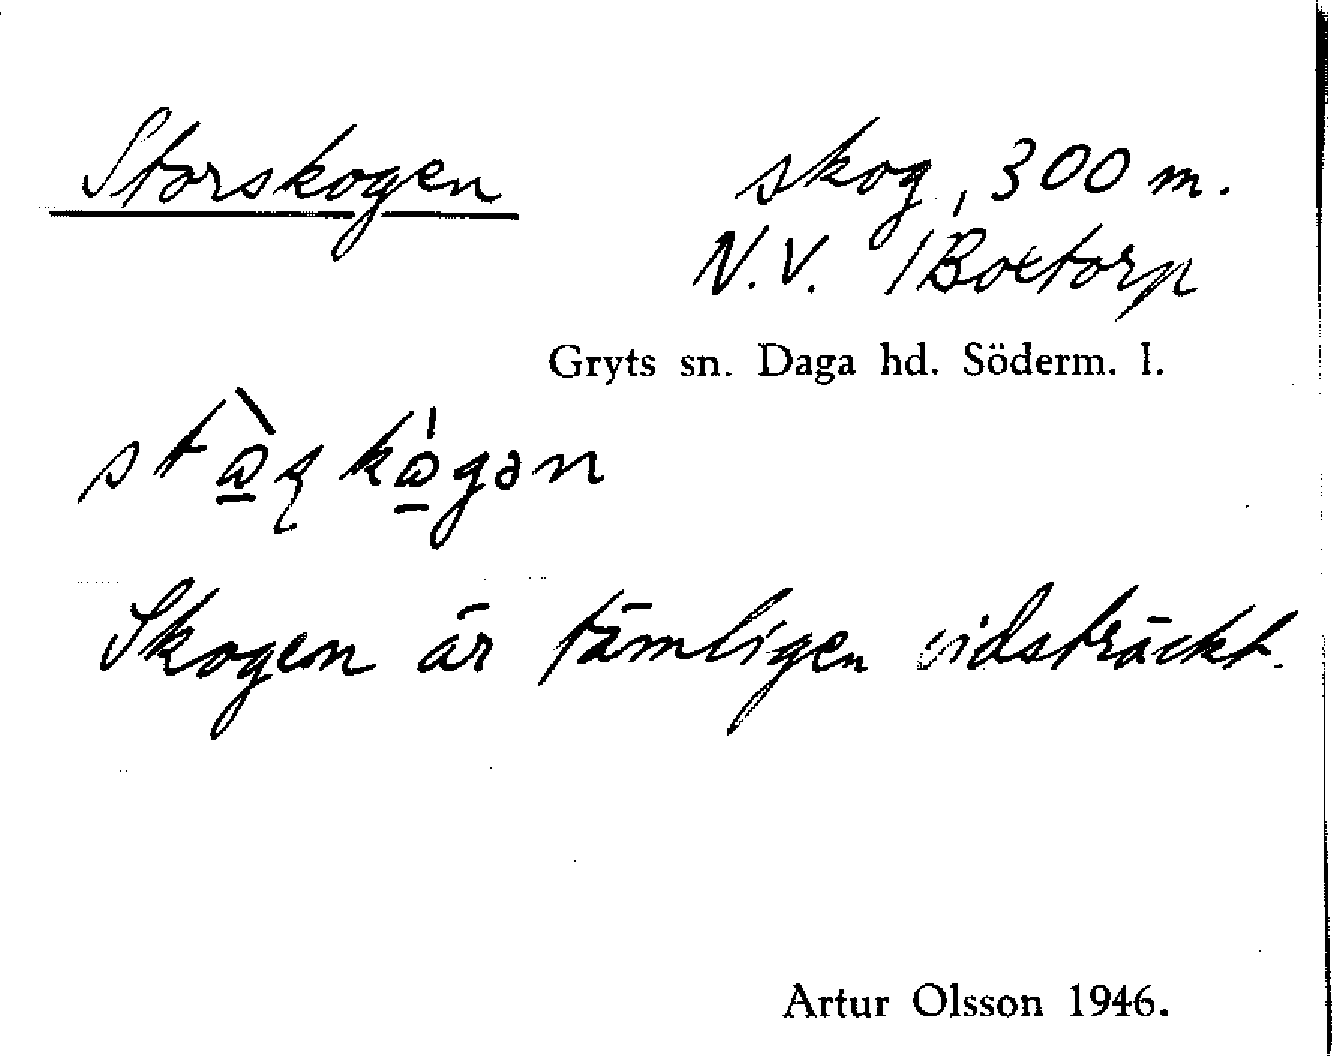 Storskogen
skog, 300 m.
N.V. /Boetorp
Gryts sn. Daga hd. Söderm. l.
Skogen är tämligen vidsträckt.
Artur Olsson 1946.